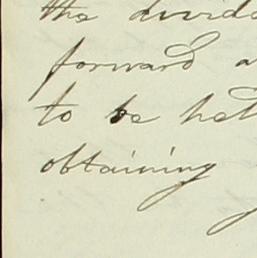 the divide
forward a
to be hel
obtaining